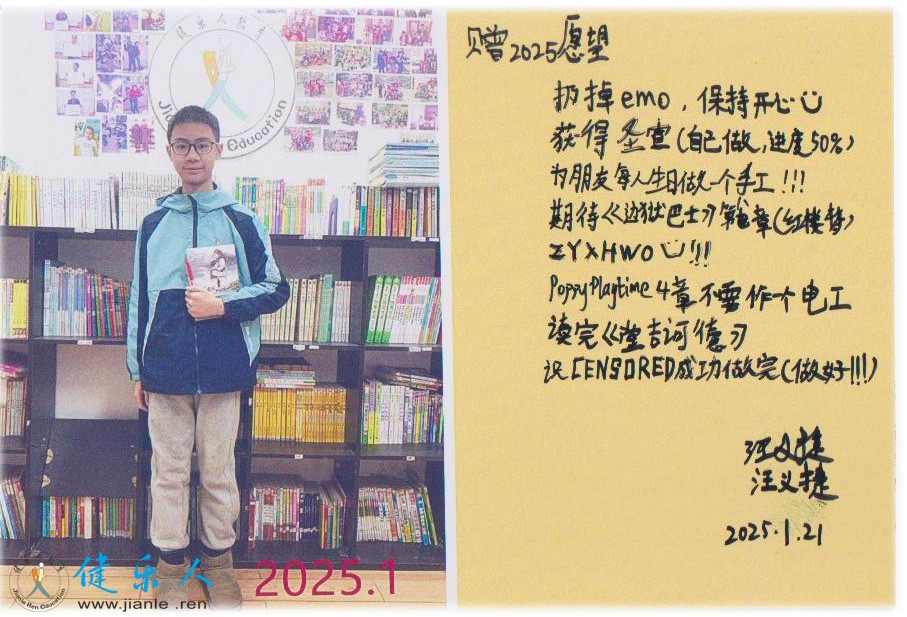 健乐人教育
Jianle Ren Education
2025.1
健乐人
www.jianle.ren
Jianle Ren Education
赠2025愿望
扔掉emo，保持开心
获得圣宣(自己做,进度50%)
为朋友每人生日做一个手工!!!
期待《边狱巴士》第 章(红楼梦)
ZYXHWO !!!
PoppyPlaytime 4章不要作个电工
读完《堂吉诃德》
祝CENSORED成功做完(做好!!!)
汪义捷
汪义捷
2025.1.21